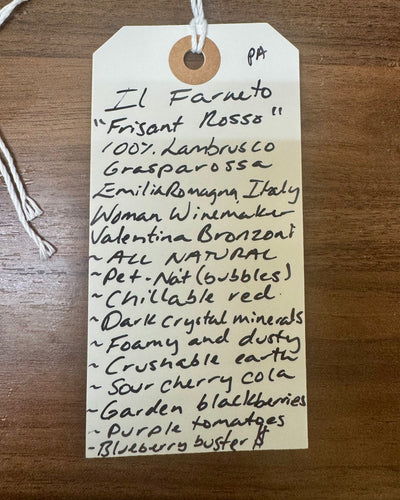 PA
Il Farneto
"Frisant Rosso"
100% Lambrusco
Grasparossa
Emilia Romagna, Italy
Woman Winemaker
Valentina Bronzoni
~ ALL NATURAL
~ Pet-Nat (bubbles)
~ Chillable red.
~ Dark crystal minerals
~ Foamy and dusty
~ Crushable earth
~ Sour cherry cola
~ Garden blackberries
~ Purple tomatoes
~ Blueberry buster $